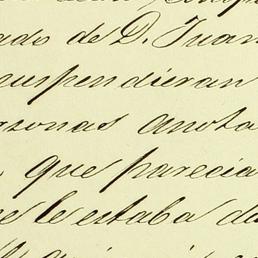 ado de D. Juan
suspendieran
rsonas anota
que parecia
le estaba da